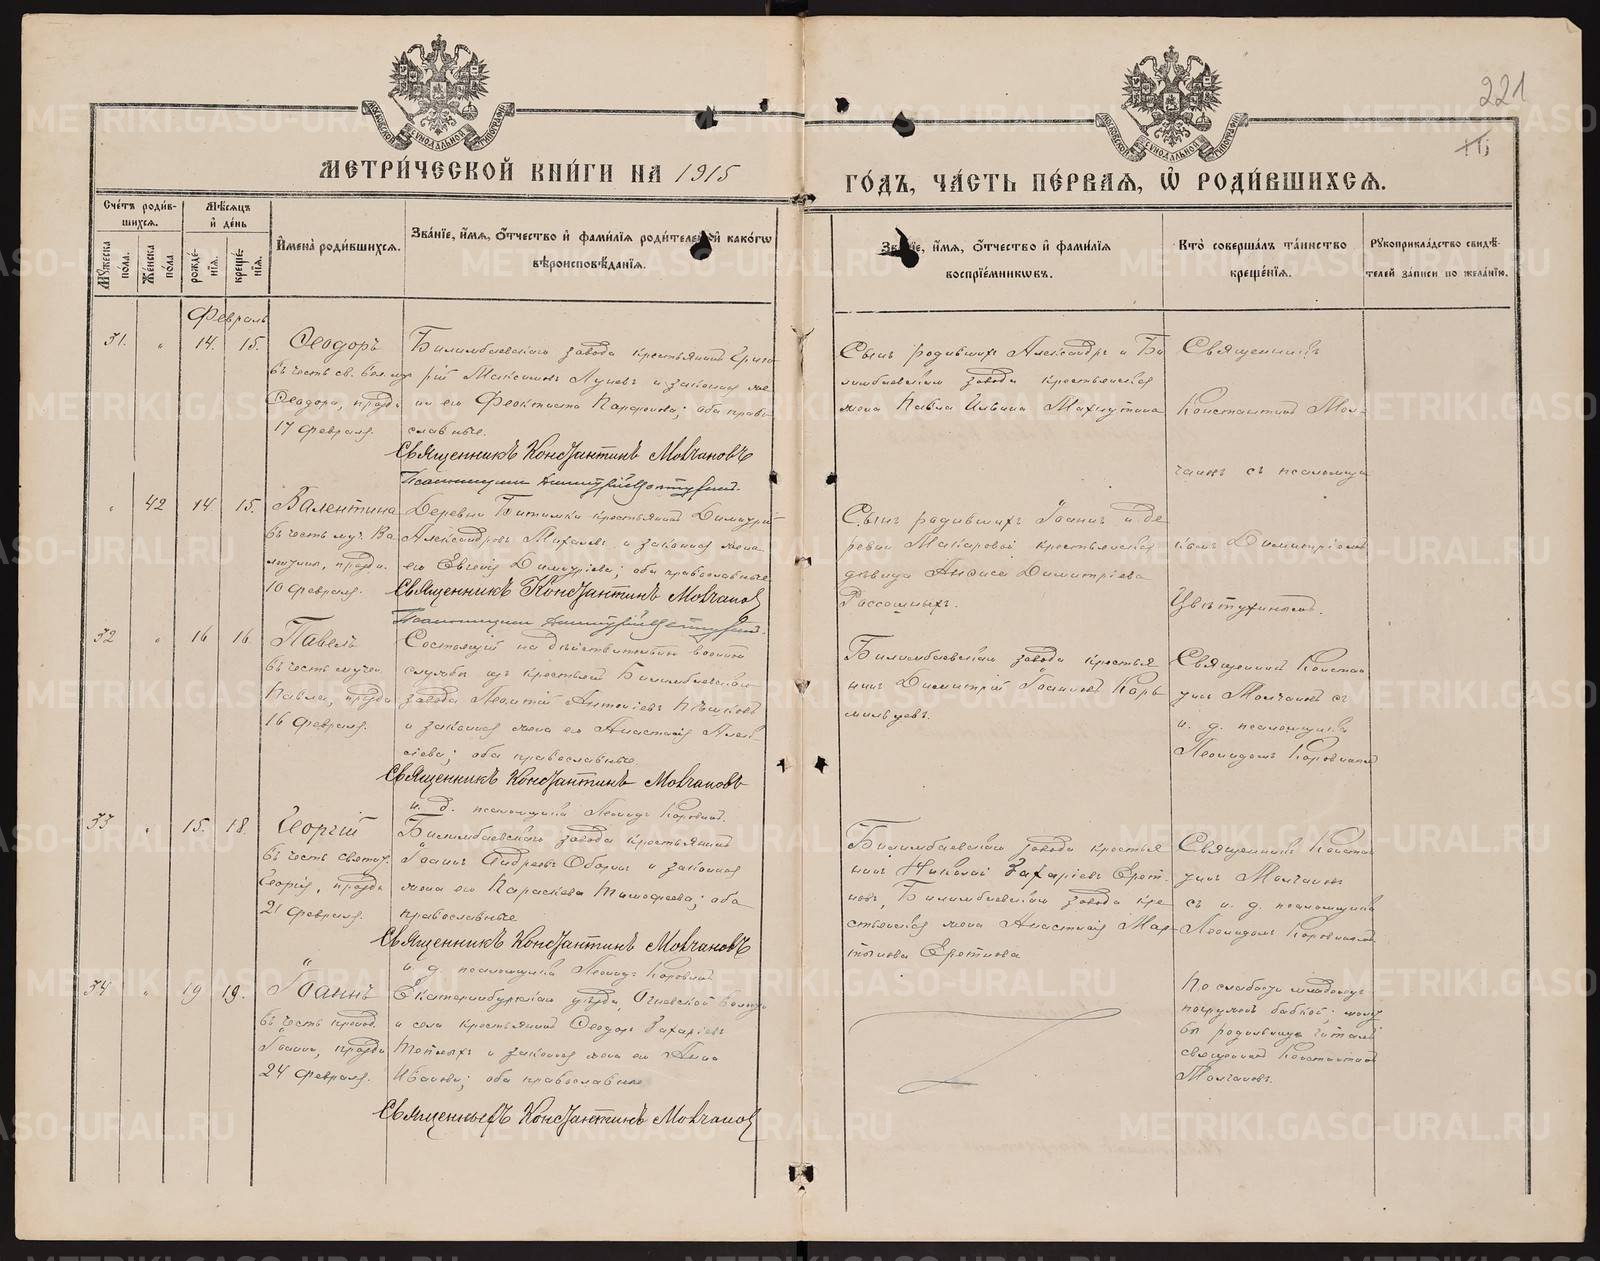 221
МОСКОВСКОЙ СѴНОДАЛЬНОЙ ТИПОГРАФІИ
МОСКОВСКОЙ СѴНОДАЛЬНОЙ ТИПОГРАФІИ
МЕТРИ́ЧЕСКОЙ КНИ́ГИ НА 1915
ГО́ДЪ, ЧА́СТЬ ПЕ́РВАЯ, Ѡ҆ РОДИ́ВШИХСЯ.
Сче́тъ роди́в-
шихся.
Мѹжеска пола.
Же́нска пола
Мѣсяцъ
и҆ де́нь
рожде́-
нія.
креще́-
нія.
И҆мена̀ роди́вшихся.
Зва́ніе, и҆́мя, ѻ҆́тчество и҆ фами́лія роди́телей и҆ како́гѡ
вѣроисповѣ́данія.
Зва́ніе, и҆́мя, ѻ҆́тчество и҆ фами́лія
воспріе́мникѡвъ.
Кто̀ соверша́лъ та́инство
креще́нія.
Рѹкоприкла́дство свидѣ́-
телей за́писи по жела́нію.
Февраль
31. " 14. 15. Ѳеодоръ
въ честь св. вел. му
Ѳеодора, празд.
17 февраля.
Билимбаевскаго завода крестьянинъ Григо
рій Максимовъ Лузевъ и законная же
на его Феоктиста Парфенова; оба право
славные.
Священникъ Константинъ Молчановъ
Сынъ родившихъ Александръ и Би
лимбаевскаго завода крестьянская
жена Павла Ильина Махнутина
Священникъ
Константинъ Мол-
чановъ съ псаломщи
" 42 14 15. Валентина
въ честь муч. Ва
лентина, празд.
10 февраля.
Деревни Битимки крестьянинъ Димитрій
Александровъ Михалевъ и законная жена
его Евгенія Димитріева; оба православные
Священникъ Константинъ Молчановъ
Сынъ родившихъ Іоаннъ и де
ревни Макаровой крестьянская
дѣвица Анфиса Димитріева
Россошныхъ.
комъ Димитріемъ
Цвѣтухинымъ.
32 " 16 16 Павелъ
въ честь мучен.
Павла, празд.
16 февраля.
Состоящій на дѣйствительной военной
службѣ изъ крестьянъ Билимбаевскаго
завода Леонтій Антоніевъ Пѣшковъ
и законная жена его Анастасія Алек
сіева; оба православные.
Священникъ Константинъ Молчановъ
и. д. псаломщика Леонидъ Коровинъ.
Билимбаевскаго завода крестья
нинъ Димитрій Іоанновъ Корь
мильцевъ.
Священникъ Констан
тинъ Молчановъ съ
и. д. псаломщика
Леонидомъ Коровинымъ
33 " 15. 18. Георгій
въ честь святит.
Георгія, празд.
21 февраля.
Билимбаевскаго завода крестьянинъ
Іоаннъ Андреевъ Оборинъ и законная
жена его Параскева Тимофеева; оба
православные
Священникъ Константинъ Молчановъ
и. д. псаломщика Леонидъ Коровинъ
Билимбаевскаго завода крестья
нинъ Николай Захаріевъ Ерет-
новъ, Билимбаевскаго завода кре
стьянская жена Анастасія Мар-
тынова Еретнова
Священникъ Констан
тинъ Молчановъ
съ и. д. псаломщика
Леонидомъ Коровинымъ
34 " 19 19. Іоаннъ
въ честь препод.
Іоанна, празд.
24 февраля.
Екатеринбургскаго уѣзда, волости
и села крестьянинъ Ѳеодоръ Захаріевъ
Теплыхъ и законная жена его Анна
Иванова; оба православные
Священникъ Константинъ Молчановъ
По слабости младенецъ
погруженъ бабкой; молит
вы родильницѣ читалъ
священникъ Константинъ
Молчановъ.
METRIKI.GASO-URAL.RU